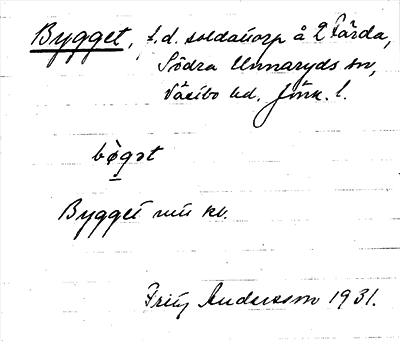 Bygget, f.d. soldattorp å 2 Färda,
Södra Unnaryds sn,
Västbo hd. Jönk. l.
bø̀gət
Bygget
Fritz Andersson 1931.